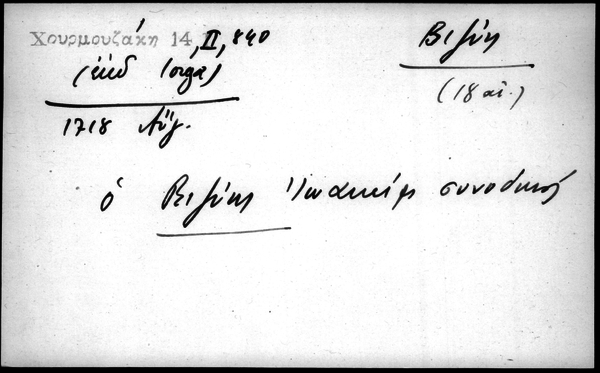 Χουρμουζάκη 14, II, 840
(ἐκδ Iorga)
1718 Αὔγ.
Βιζύης
(18 αἰ.)
ὁ Βιζύης Ἰωακείμ συνοδικός